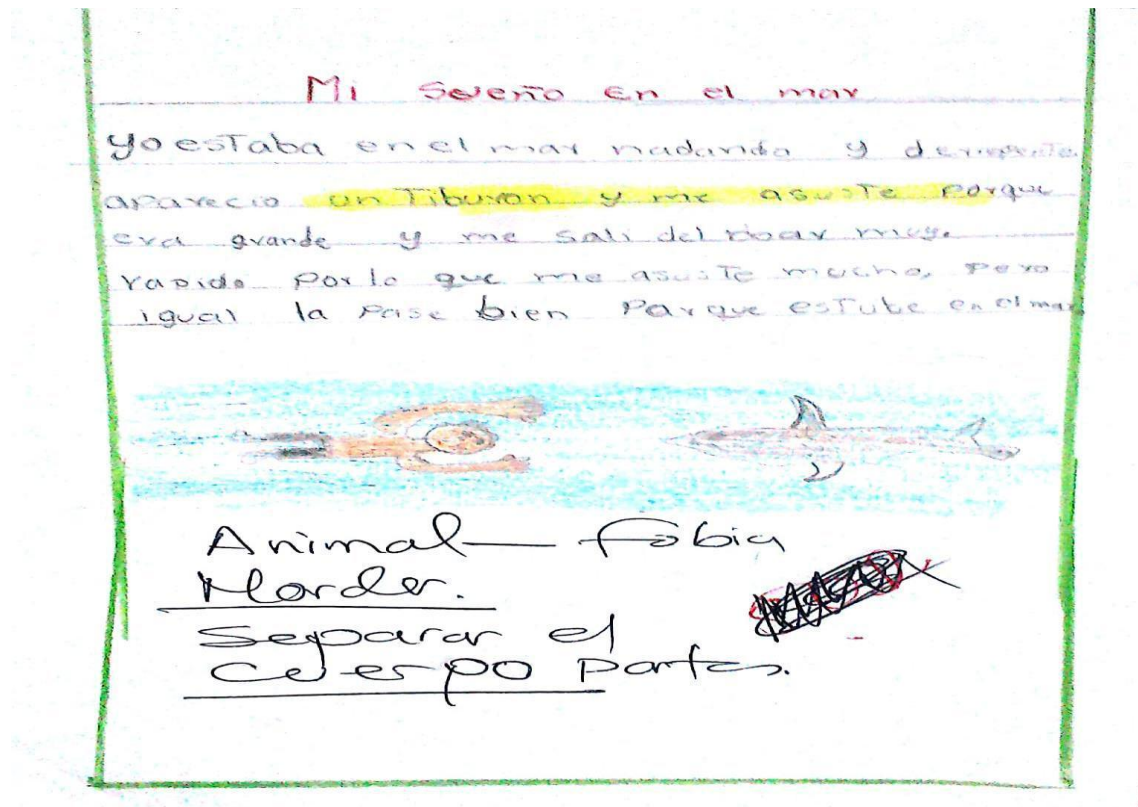 Mi sueño en el mar
yo estaba en el mar nadando y derrepente
aparecio un Tiburon y me asuste porque
era grande y me sali del mar muy
rapido por lo que me asuste mucho, pero
igual la pase bien Porque estube en el mar
Animal — fobia
Morder.
Separar el
Cuerpo partes.